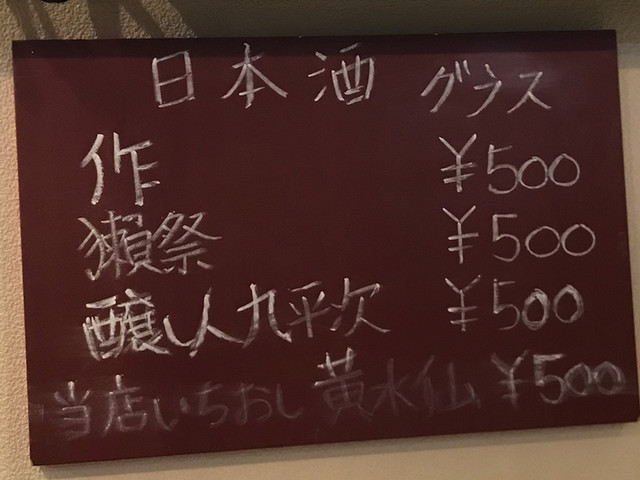 日本酒 グラス
作 ¥500
獺祭 ¥500
醸し人九平次 ¥500
当店いちおし 黄水仙 ¥500